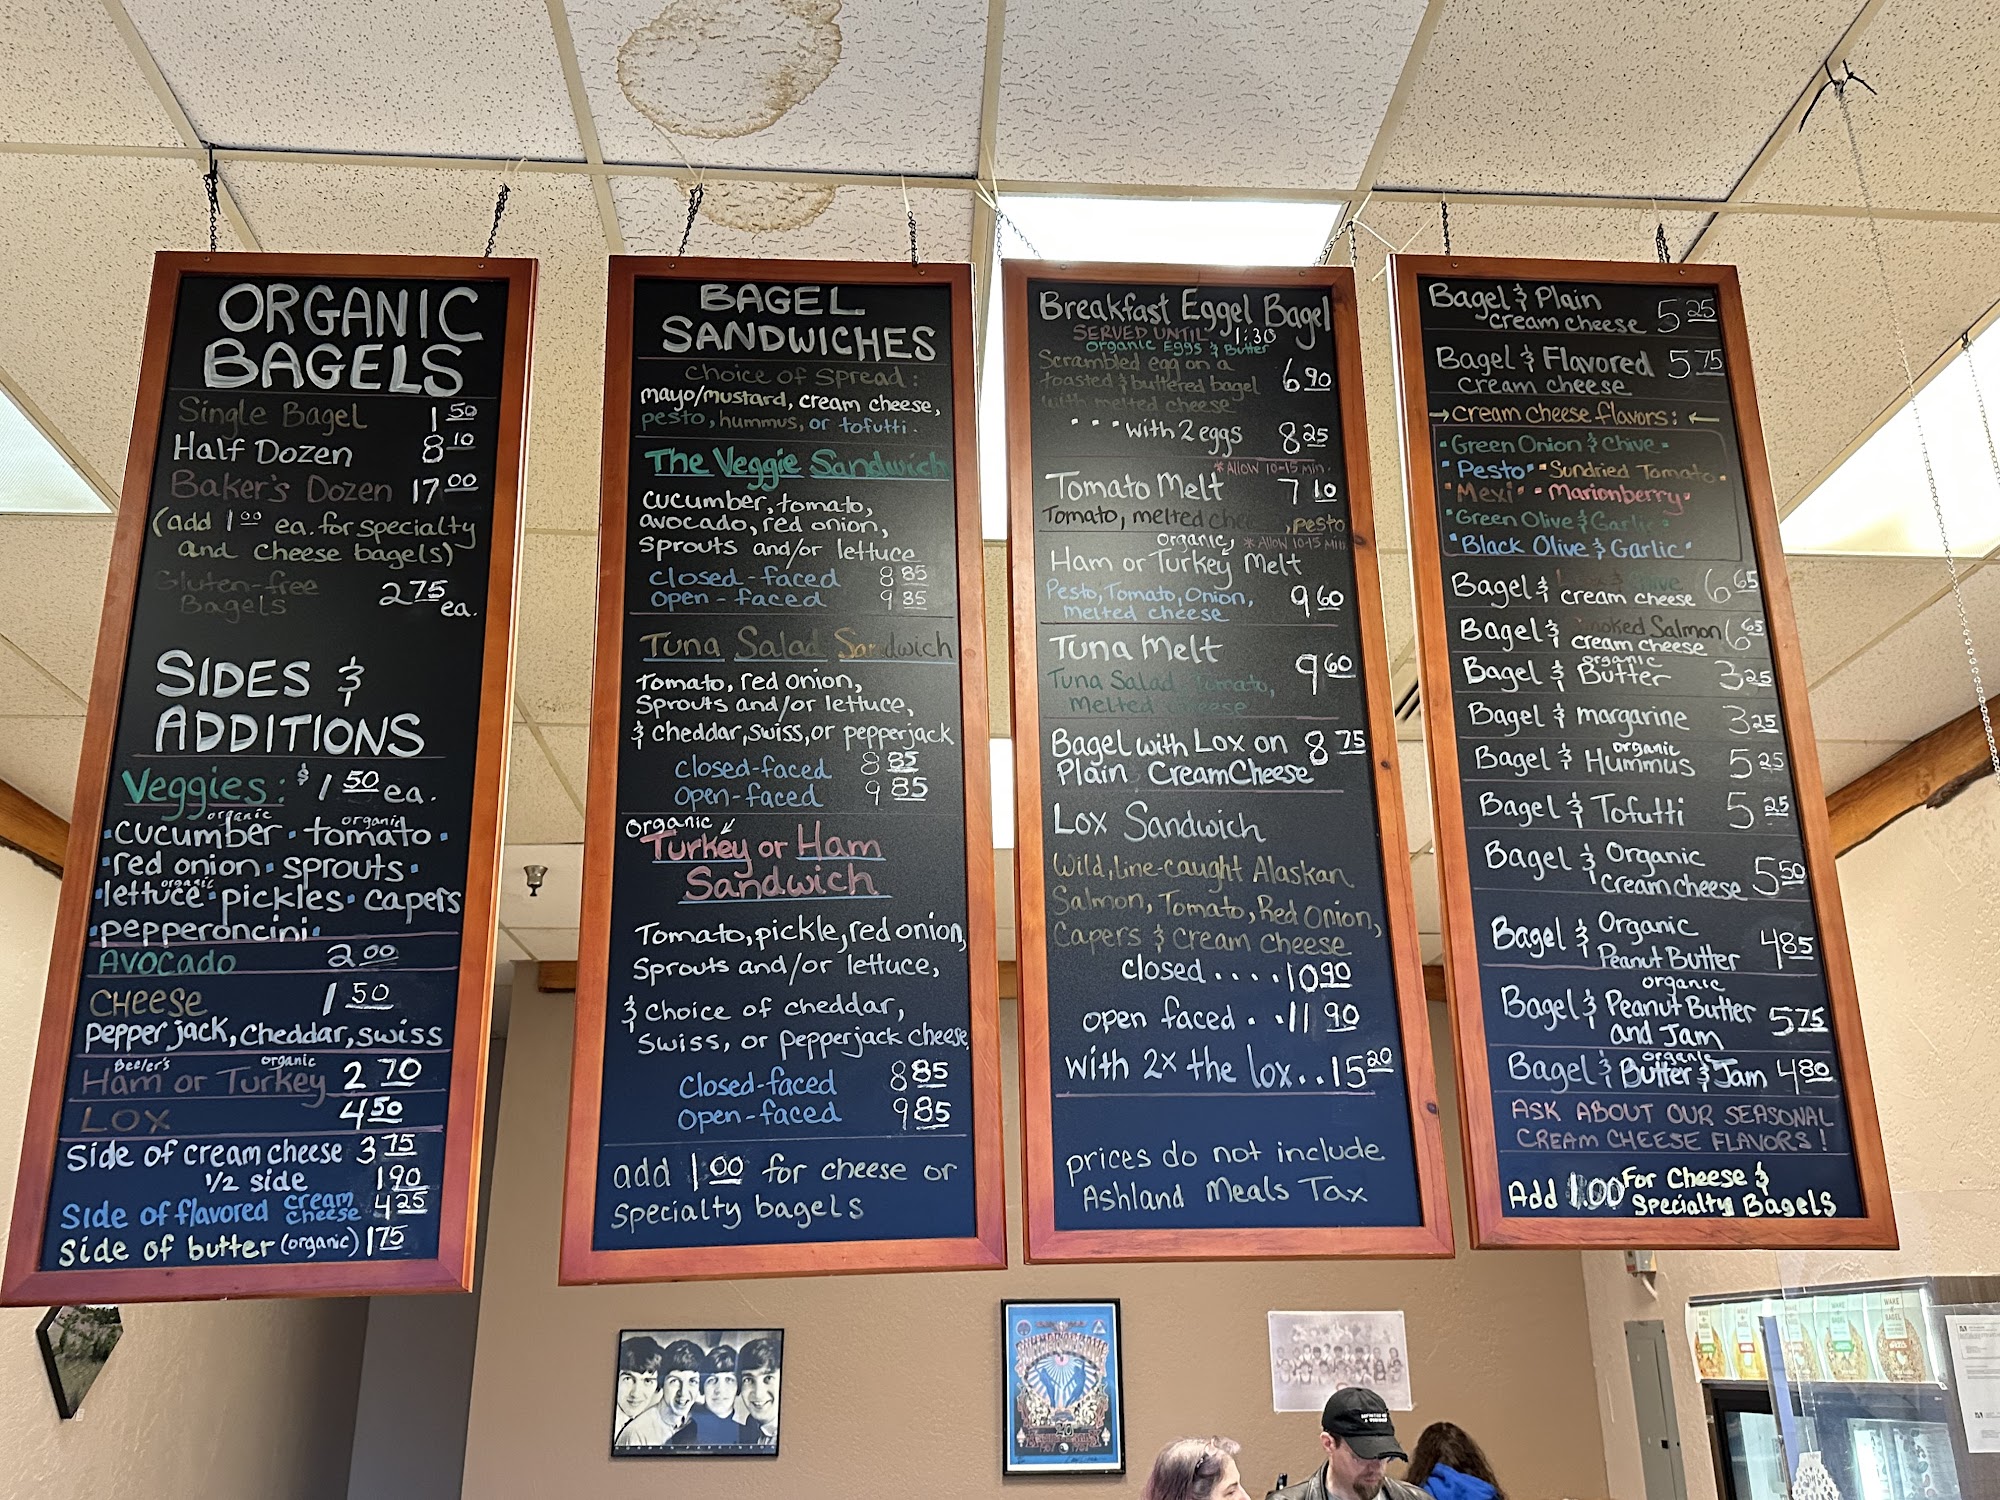 ORGANIC
BAGELS
Single Bagel 1 50
Half Dozen 8 10
Baker's Dozen 17 00
(add 1 00 ea. for specialty
and cheese bagels)
Gluten-free
Bagels 2 75 ea.
SIDES &
ADDITIONS
Veggies: $1 50 ea.
organic organic
• cucumber • tomato •
• red onion • sprouts •
organic
• lettuce • pickles • capers
• pepperoncini •
AVOCADO 2 00
CHEESE 1 50
pepper jack, cheddar, swiss
Beeler's organic
Ham or Turkey 2 70
LOX 4 50
Side of cream cheese 3 75
1/2 side 1 90
Side of flavored cream cheese 4 25
Side of butter (organic) 1 75
BAGEL
SANDWICHES
Choice of Spread:
mayo/mustard, cream cheese,
pesto, hummus, or tofutti.
The Veggie Sandwich
cucumber, tomato,
avocado, red onion,
Sprouts and/or lettuce
closed-faced 8 85
open-faced 9 85
Tuna Salad Sandwich
Tomato, red onion,
Sprouts and/or lettuce,
& cheddar, swiss, or pepperjack
Closed-faced 8 85
Open-faced 9 85
Organic
Turkey or Ham
Sandwich
Tomato, pickle, red onion,
Sprouts and/or lettuce,
& choice of cheddar,
Swiss, or pepperjack cheese
Closed-faced 8 85
Open-faced 9 85
add 1.00 for cheese or
specialty bagels
Breakfast Eggel Bagel
SERVED UNTIL 1:30
Organic Eggs & Butter
Scrambled egg on a
toasted & buttered bagel 6 90
with melted cheese
...with 2 eggs 8 25
* Allow 10-15 min.
Tomato Melt 7 10
Tomato, melted , pesto
organic * Allow 10-15 min
Ham or Turkey Melt
Pesto, Tomato, Onion, 9 60
melted cheese
Tuna Melt 9 60
Tuna Salad, Tomato,
Melted cheese
Bagel with Lox on 8 75
Plain Cream Cheese
Lox Sandwich
Wild, Line-caught Alaskan
Salmon, Tomato, Red Onion,
Capers & cream cheese
closed .... 10 90
open faced .. 11 90
with 2x the lox.. 15 20
prices do not include
Ashland Meals Tax
Bagel & Plain
cream cheese 5 25
Bagel & Flavored 5 75
cream cheese
→ cream cheese flavors: ←
• Green Onion & Chive •
• Pesto • • Sundried Tomato •
• Mexi • • Marionberry •
• Green Olive & Garlic •
• Black Olive & Garlic •
Bagel & cream cheese 6 65
Bagel & Smoked Salmon 6 65
cream cheese
organic
Bagel & Butter 3 25
Bagel & margarine 3 25
organic
Bagel & Hummus 5 25
Bagel & Tofutti 5 25
Bagel & Organic
Cream cheese 5 50
Bagel & Organic
Peanut Butter 4 85
organic
Bagel & Peanut Butter
and Jam 5 75
organic
Bagel & Butter & Jam 4 80
ASK ABOUT OUR SEASONAL
CREAM CHEESE FLAVORS!
Add 1.00 For Cheese &
Specialty Bagels